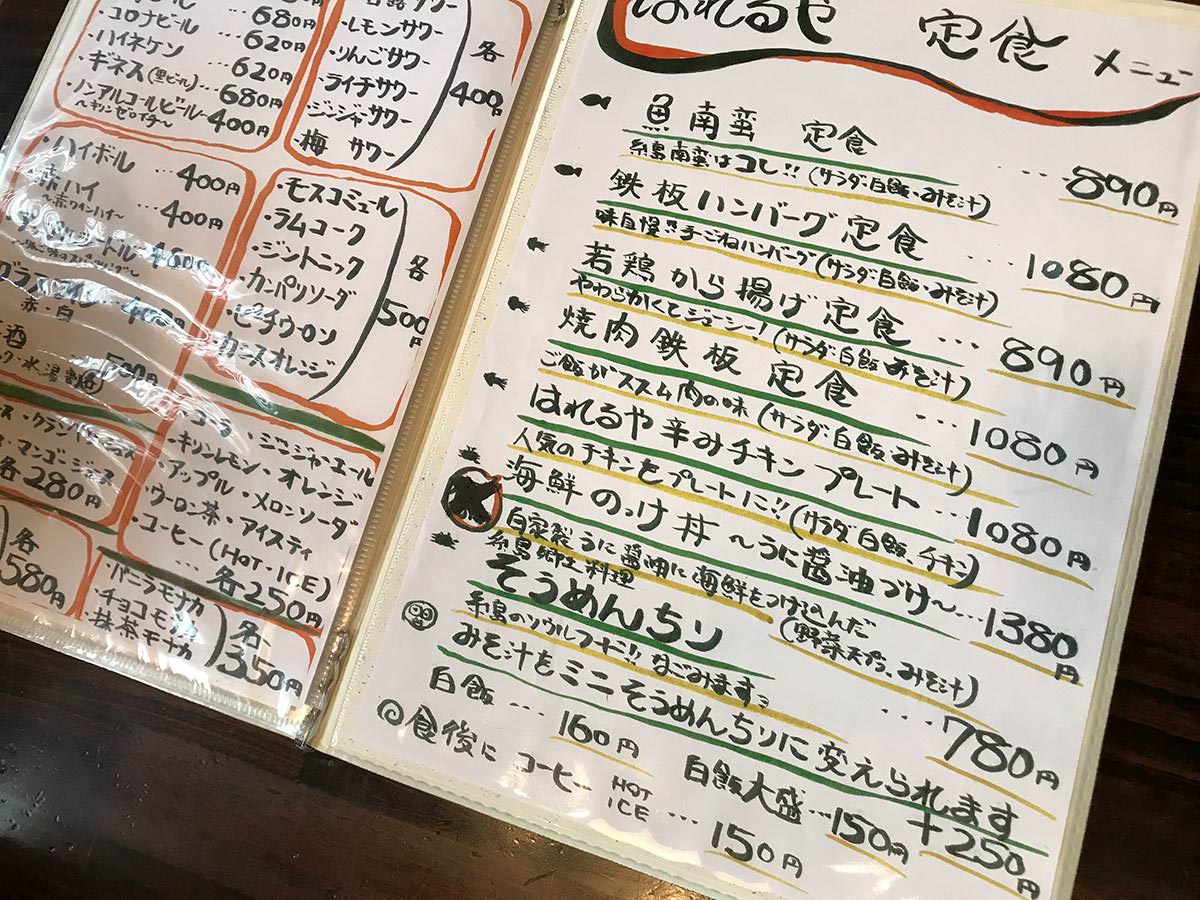 コロナビール…680円
ハイネケン…620円
・ギネス(黒ビール)…680円
・ノンアルコールビール…400円
〜キリンゼロイチ〜
・レモンサワー
・りんごサワー
・ライチサワー
・ジンジャーサワー
・梅 サワー
各400円
・ハイボール…400円
赤ハイ…400円
赤・白
・モスコミュール
・ラムコーク
・ジントニック
・カンパリソーダ
・ピーチウーロン
・カシスオレンジ
各500円
マンゴージュース
各280円
コーラ・ジンジャーエール
・キリンレモン・オレンジ
・アップル・メロンソーダ
・ウーロン茶・アイスティ
・コーヒー(HOT・ICE)
…各250円
各580円
・バニラモナカ
・チョコモナカ
・抹茶モナカ
各350円
はれるや 定食 メニュー
魚南蛮 定食…890円
糸島南蛮はコレ!!(サラダ・白飯・みそ汁)
鉄板ハンバーグ定食…1080円
味自慢!!手ごねハンバーグ(サラダ・白飯・みそ汁)
若鶏から揚げ定食…890円
やわらかくてジューシー!(サラダ・白飯・みそ汁)
焼肉鉄板 定食…1080円
ご飯がススム肉の味(サラダ・白飯・みそ汁)
はれるや辛みチキン プレート…1080円
人気のチキンをプレートに!!(サラダ・白飯、チキン)
海鮮のっけ丼〜うに醤油づけ〜…1380円
自家製うに醤油に海鮮をつけ込んだ
(野菜天ぷら、みそ汁)
糸島郷土料理
そうめんちり…780円
糸島のソウルフード!!なごみます。
みそ汁をミニそうめんちりに変えられます
+250円
白飯…160円 白飯大盛…150円
食後に コーヒー HOT ICE…150円